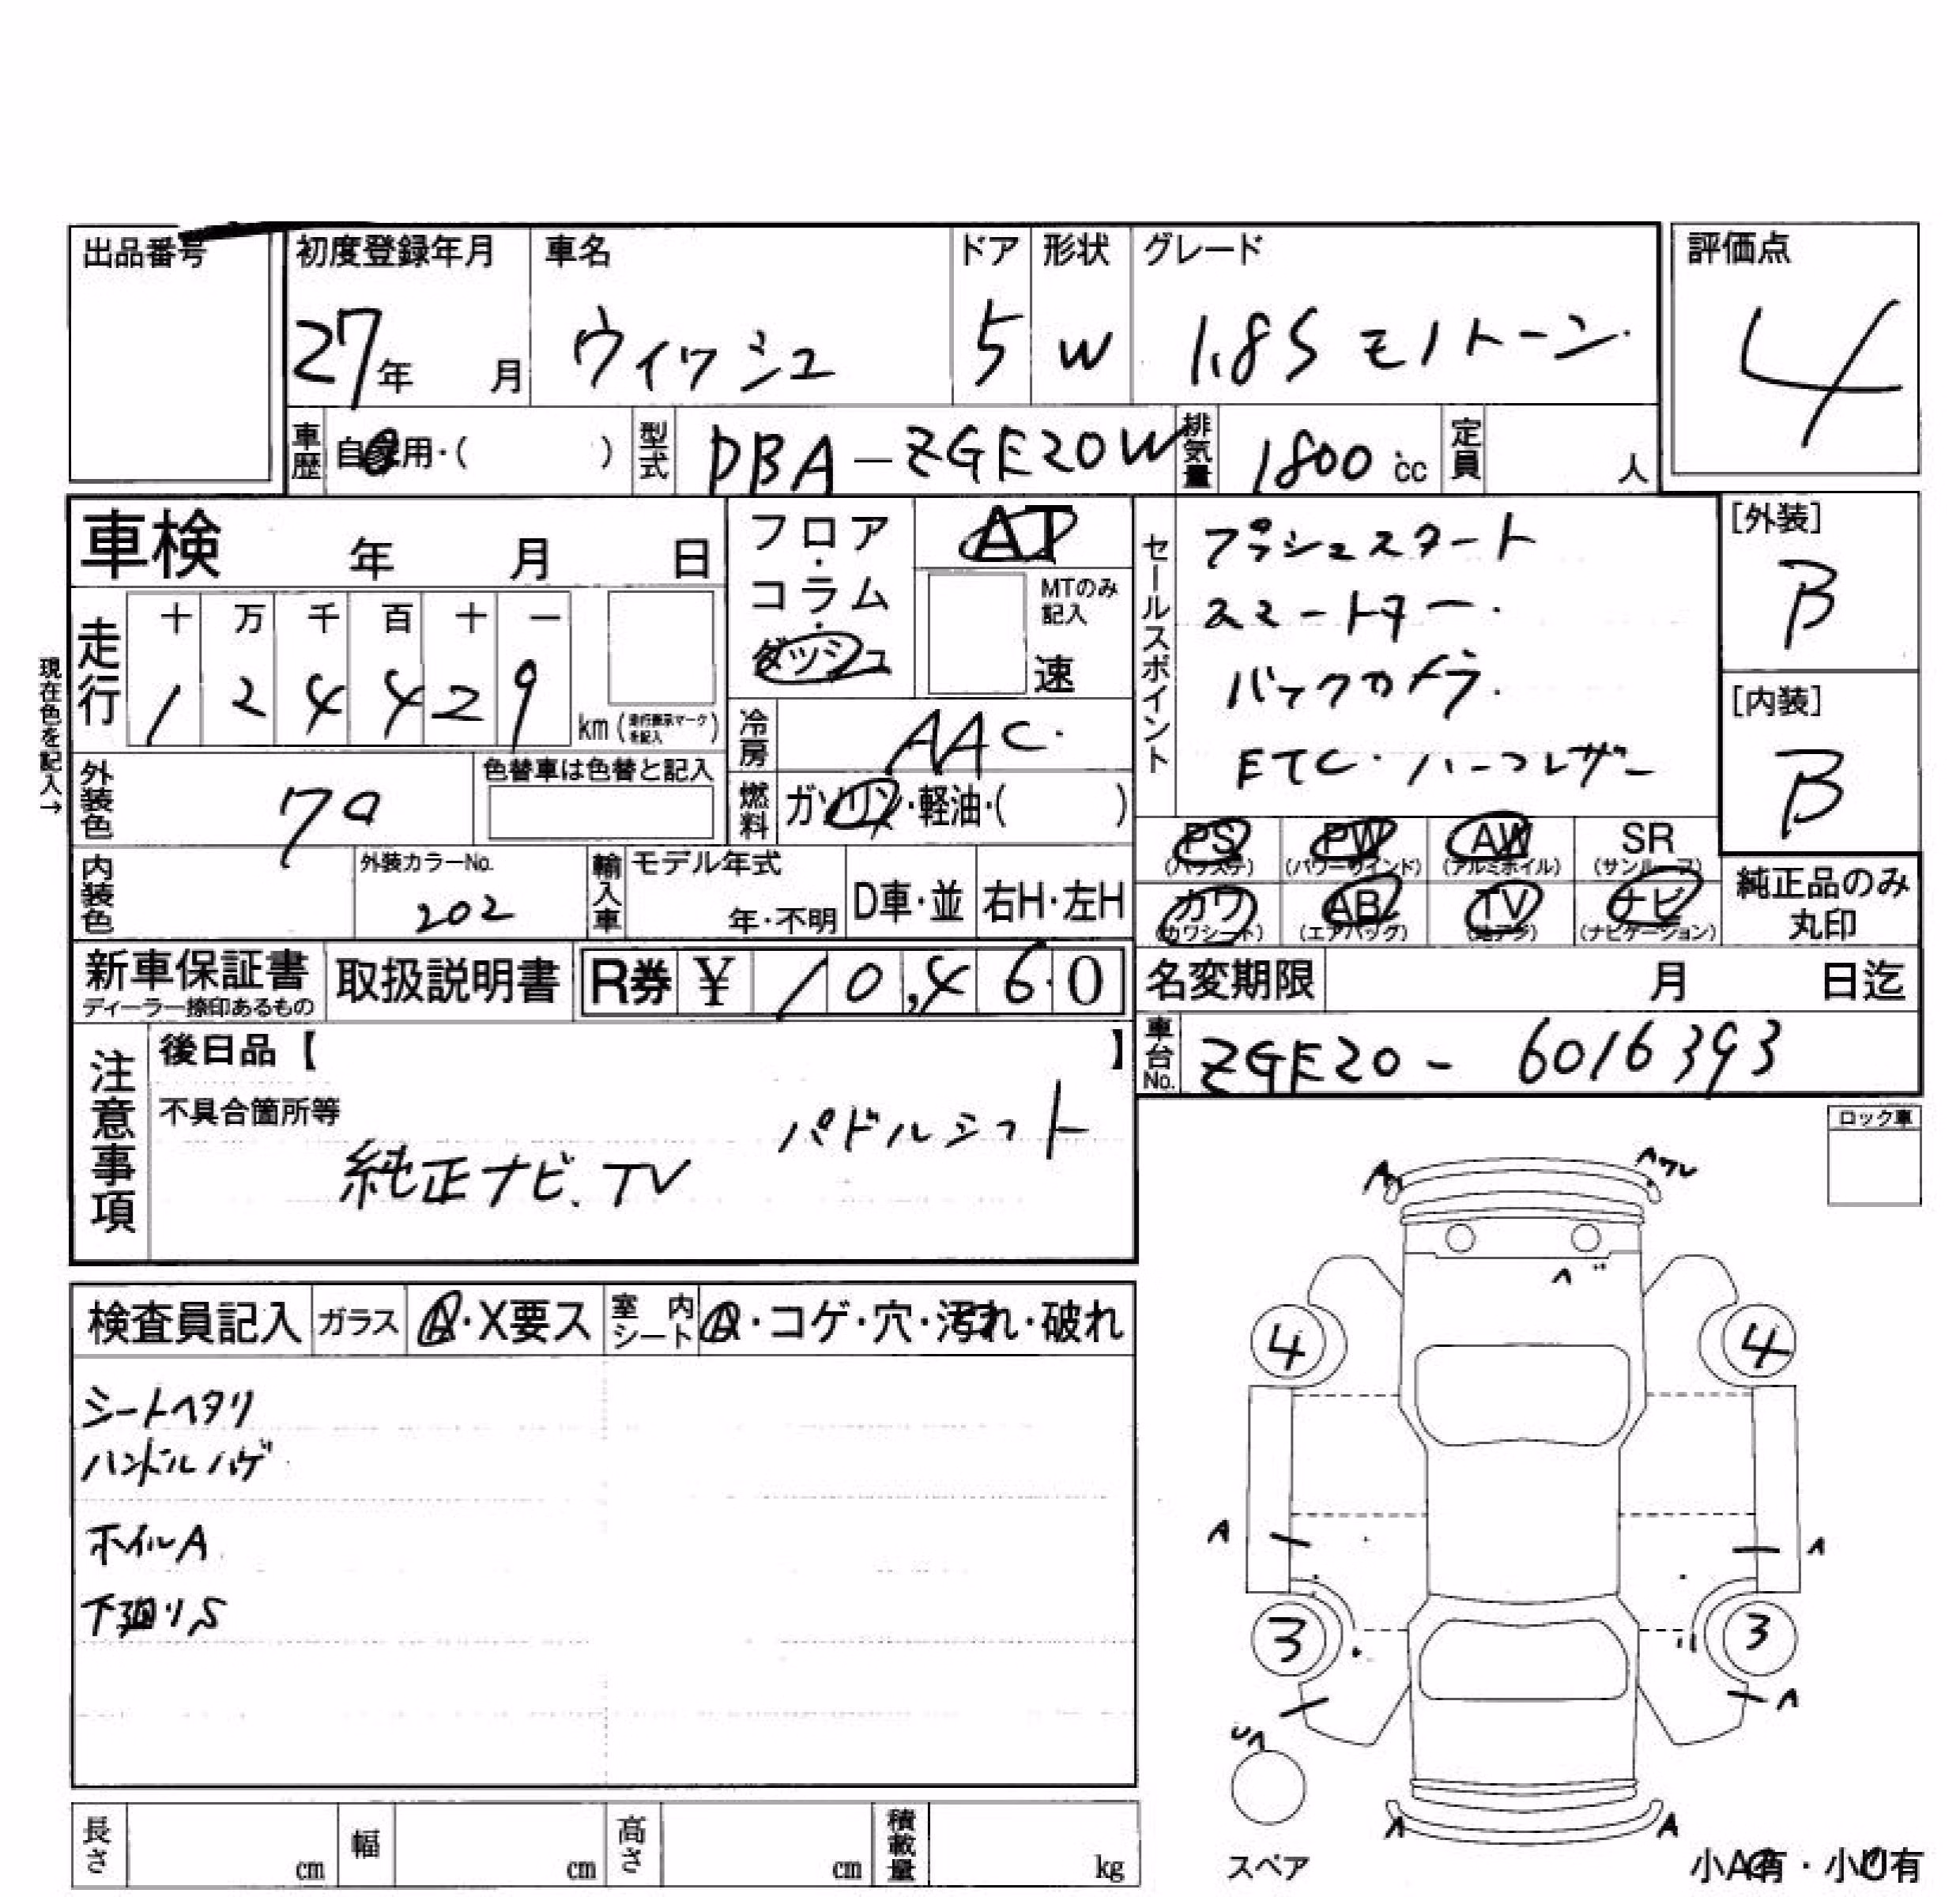 出品番号
初度登録年月 車名 ドア 形状 グレード 評価点
27年 月 ウィッシュ 5 W 1.8S モノトーン 4
車歴 自家用・( ) 型式 DBA-ZGE20W 排気量 1800cc 定員 人
車検 年 月 日
フロア・コラム・ダッシュ
AT
MTのみ記入
速
セールスポイント
プッシュスタート
スマートキー.
バックカメラ.
ETC・ハーフレザー
[外装]
B
[内装]
B
現在色を記入→
走行 十 万 千 百 十 一
1 2 4 4 2 9 km
冷房 AAC.
外装色 色替車は色替と記入
燃料 ガソリン・軽油・( )
PS PW AW SR
(パワステ) (パワーウインド) (アルミホイル) (サンルーフ)
カワ AB TV ナビ
(カワシート) (エアバッグ) (地デジ) (ナビゲーション)
純正品のみ
丸印
内装色 外装カラーNo. 202 輸入車 モデル年式 年・不明 D車・並 右H・左H
新車保証書 取扱説明書 R券 ¥ 10,460
ディーラー捺印あるもの
名変期限 月 日迄
車台No. ZGE20-6016393
注意事項
後日品【 】
不具合箇所等
パドルシフト
純正ナビ.TV
ロック車
検査員記入 ガラス A・X要ス 室内シート ・コゲ・穴・汚れ・破れ
シートヘタリ
ハンドルハゲ
ホイルA
下廻りS
A
4 4
A
3 3
A A
スペア
小A有・小U有
長さ cm 幅 cm 高さ cm 積載量 kg